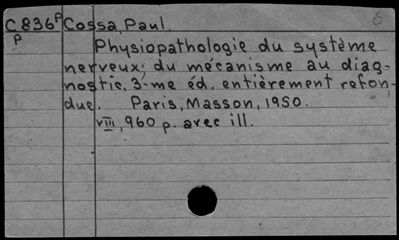 6
C836p Cossa, Paul.
p
Physiopathologie du système
nerveux; du mécanisme au diag-
nostic. 3-me éd. entièrement refon-
due. Paris, Masson, 1950.
VIII, 960 p. avec ill.